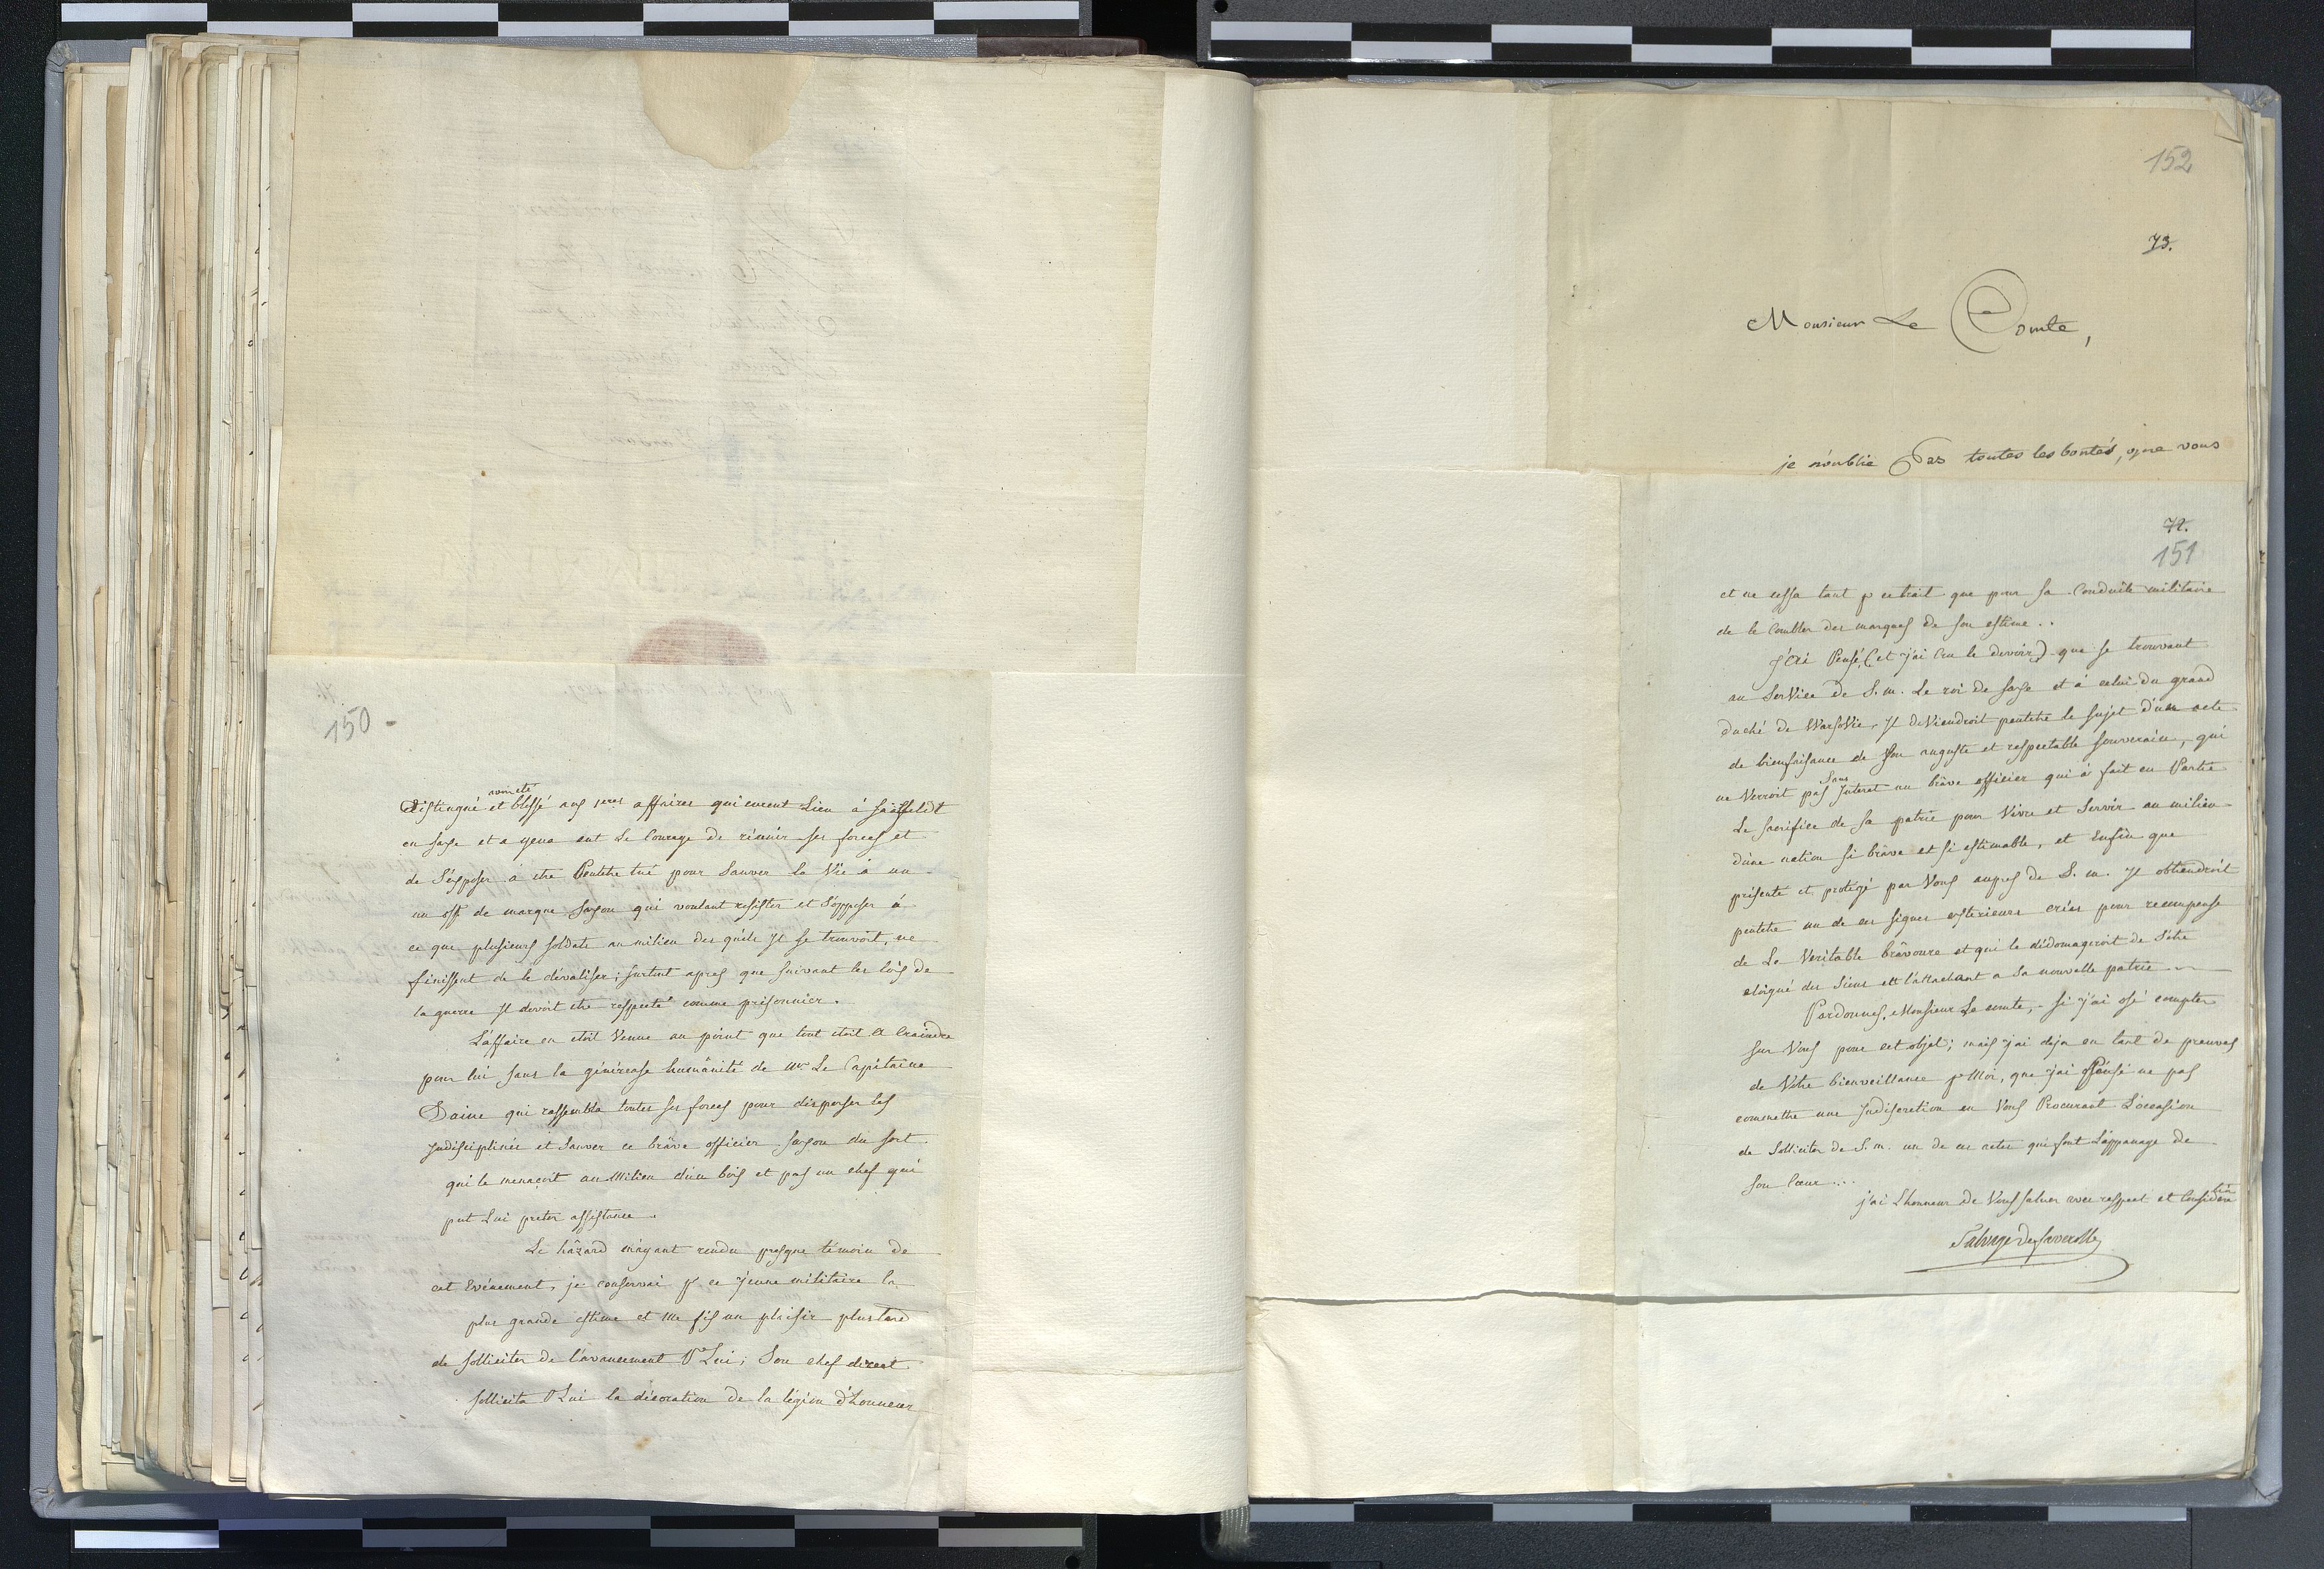 150
voir été
distingué et blessé aux 1eres affaires qui eurent Lieu à Saalfeldt
en Saxe et a yena eut Le Courage de réunir ses forces et
de S'exposer à etre Peutetre tué pour Sauver la Vie à un
un off. de marque Saxon qui voulant resister et S'opposer à
ce que plusieurs soldats au milieu des quels Il se trouvoit, ne
finissent de le dévaliser; surtout apres que suivant les lois de
la guerre Il devoit etre respecté comme prisonnier.
L'affaire en etoit Venue au point que tout etoit a Craindre
pour lui sans la généreuse humânité de Mr. Le Capitaine
Daine qui rassembla toutes ses forces pour disperser les
Indisciplinés et Sauver ce brâve officier Saxon du sort
qui le menaçoit au Milieu d'un bois et pas un chef qui
put Lui preter assistance.
Le hâzard m'ayant rendu presque témoin de
cet Evénement, je conservai pr ce jeune militaire la
plus grande estime et Me fis un plaisir plus tard
de solliciter de l'avancement Pr Lui; Son chef direct
sollicita Pr Lui la décoration de la légion d'honneur
152
73.
Monsieur Le Comte,
je n'oublie Pas toutes les bontés, que vous
72.
151
et ne cessa tant pr ce trait que pour sa Conduite militaire
de le Combler des marques de son estime..
J'Ai Pensé, (et j'ai Cru le devoir) que se trouvant
au SerVice de S. m. Le roi de saxe et à celui du grand
duché de WarsoVie, Il deViendroit peutetre le sujet d'un acte
de bienfaisance de Son auguste et respectable souverain, qui
ne Verroit pas Sans Interet un brâve officier qui à fait en Partie
Le sacrifice de sa patrie pour Vivre et Servir au milieu
d'une nation si brâve et si estimable, et Enfin que
présenté et protégé par Vous aupres de S. m. Il obtiendroit
peutetre un de ces signes exterieurs créés pour recompense
de La Veritable brâvoure et qui le dédomageroit de S'etre
eloigné des Siens ett l'attachant a Sa nouvelle patrie
Pardonnes, Monsieur Le comte, si j'ai osé compter
sur Vous pour cet objet; mais j'ai deja eu tant de preuves
de Votre bienveillance pr Moi, que j'ai Pensé ne pas
commettre une Indiscretion en Vous Procurant L'occasion
de Solliciter de S. m. un de ces actes qui sont L'appanage de
son Cœur....
j'ai L'honneur de Vous saluer avec respect et Considéraon
Salvage de faverolles